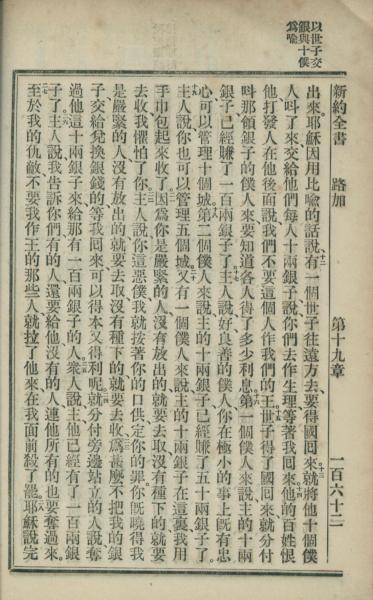 以世子交
銀與十僕
為喻
新約全書 路加 第十九章 一百六十二
出來耶穌因用比喻的話說有一個世子往遠方去要得國回來就將他十個僕
人呌了來交給他們每人十兩銀子說你們去作生理等著我回來他的百姓恨
他打發人在他後面說我們不要這個人作我們的王世子得了國回來就分付
呌那領銀子的僕人來要知道各人得了多少利息第一個僕人來說主的十兩
銀子已經賺了一百兩銀子了主人說好良善的僕人你在極小的事上旣有忠
心可以管理十個城第二個僕人來說主的十兩銀子已經賺了五十兩銀子了
主人說你也可以管理五個城又有一個僕人來說主的十兩銀子在這裏我用
手巾包起來收了因爲你是嚴緊的人沒有放出的就要去取沒有種下的就要
去收我懼怕了你主人說你這惡僕我就按著你的口供定你的罪你旣曉得我
是嚴緊的人沒有放出的就要去取沒有種下的就要去收爲甚麼不把我的銀
子交給兌換銀錢的等我回來可以得本又得利呢就分付旁邊站立的人說奪
過他這十兩銀子來給那有一百兩銀子的人衆人說主他已經有了一百兩銀
子了主人說我告訴你們有的人還要給他沒有的人連他所有的也要奪過來
至於我的仇敵不要我作王的那些人就拉了他來在我面前殺了罷耶穌說完